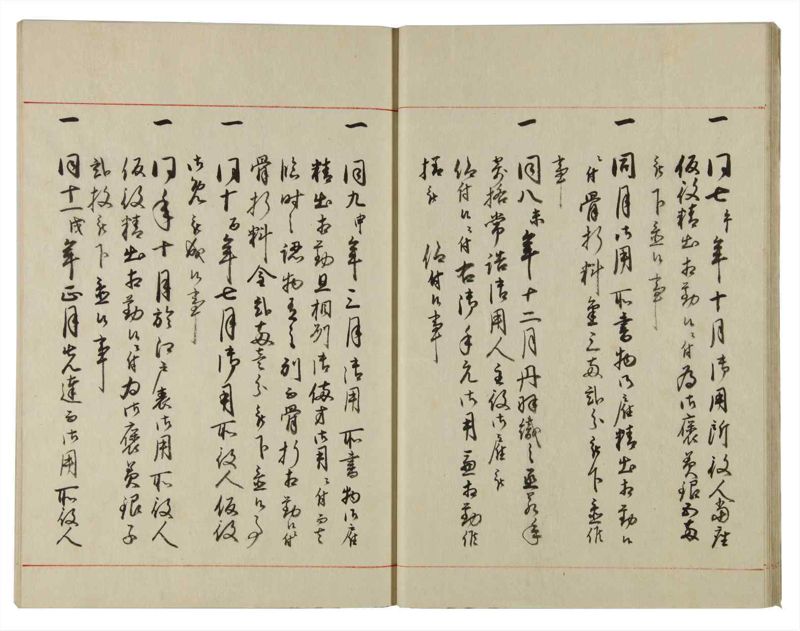 一 同七午年十月御用所役人當座
仮役精出相勤候ニ付為御褒美銀五両
被下置候事
一 同月御用所書物御雇精出相勤候
ニ付骨折料金三両弐分被下置候
事
一 同八未年十二月丹羽織之丞若年
常詰御用人主役御雇被
仰付候ニ付右御手元御用兼相勤候
様被 仰付候事
一 同九申年三月御用所書物御雇
精出相勤且相列御備才御用ニ付而も
臨時之認物有之別而骨折相勤候付
骨折料金弐両壱分被下置候事
一 同十酉年七月御用所役人仮役
御免被成候事
一 同年十月於江戸表御用所役人
仮役精出相勤候ニ付為御褒美銀子
弐枚被下置候事
一 同十一戌年正月先達而御用所役人